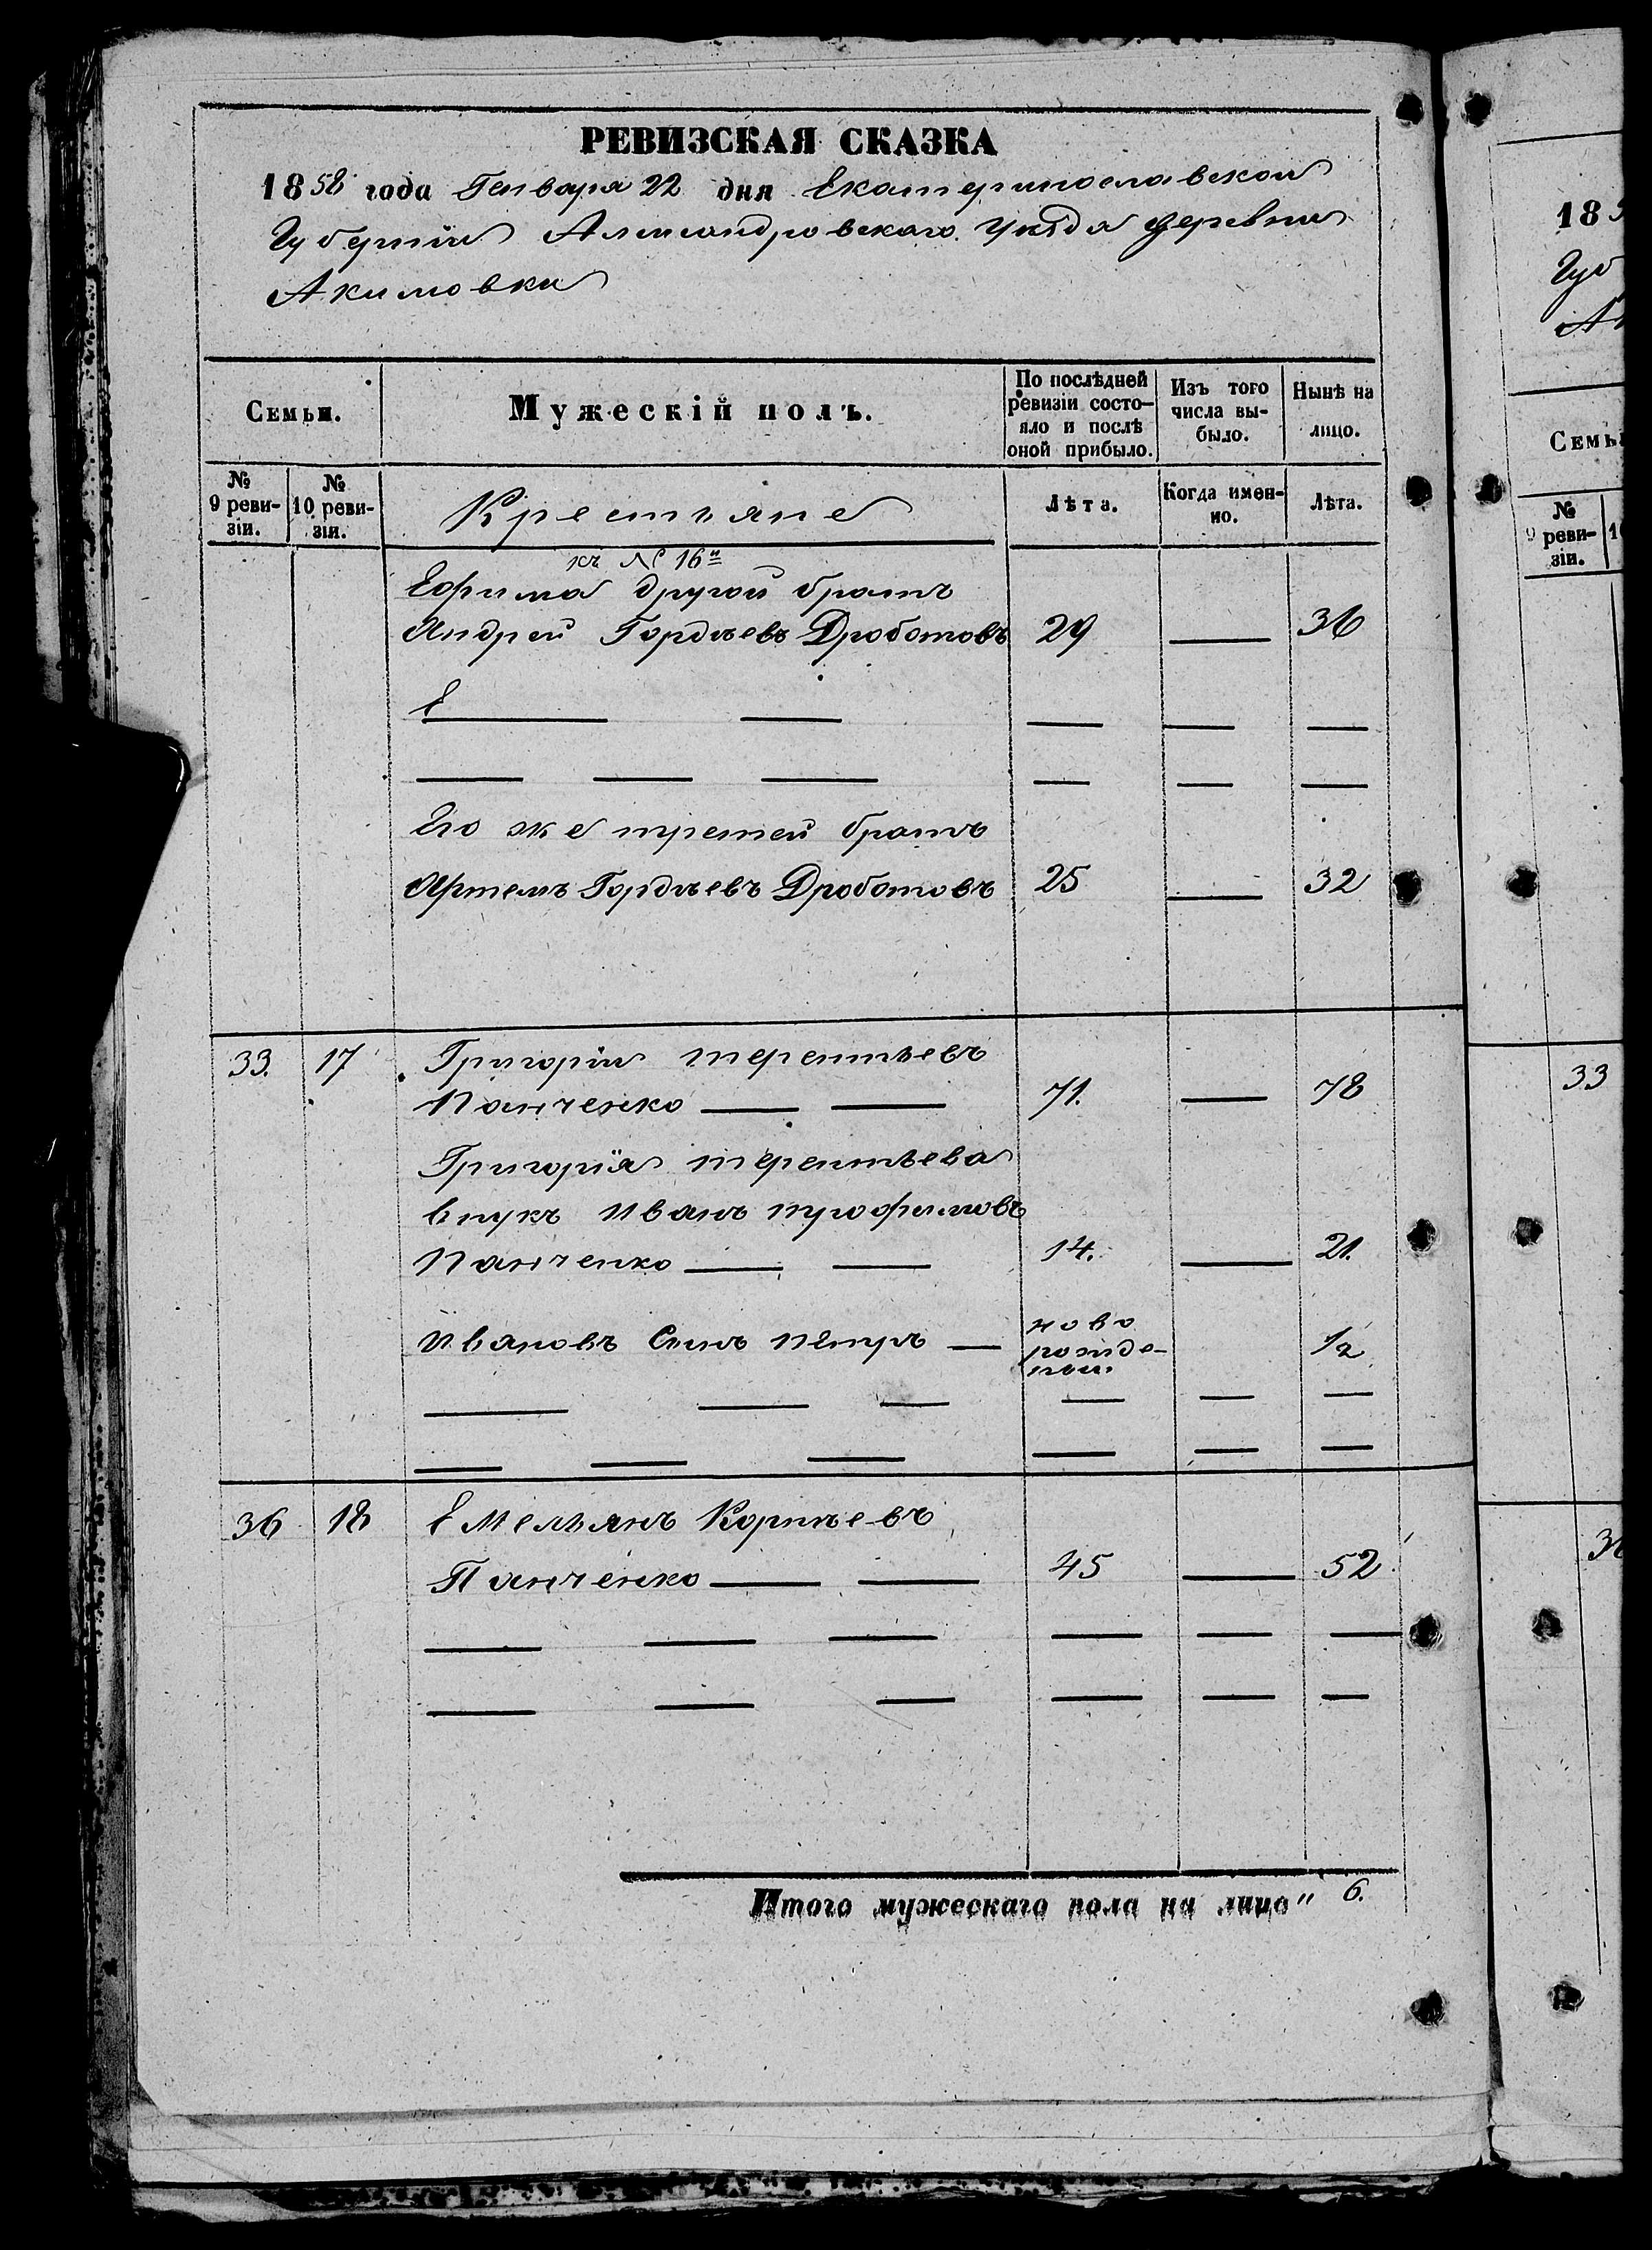 РЕВИЗСКАЯ СКАЗКА
1858 года Генваря 22 дня Екатеринославской
Губерніи Александровскаго уѣзда деревни
Акимовки
Семьи.
Мужескій полъ.
По послѣдней ревизіи состо-
яло и послѣ
оной прибыло.
Изъ того
числа вы-
было.
Нынѣ на
лицо.
№
9 реви-
зіи.
№
10 реви-
зіи.
Крестьяне
Лѣта.
Когда имен-
но.
Лѣта.
къ № 16"
Ефима другой братъ
Андрей Гордѣевъ Дроботовъ 29 — 36
Его же третей братъ
Артемъ Гордѣевъ Дроботовъ 25 — 32
33. 17 Григорій терентьевъ
Панченко — — 71. — 78
Григорія терентьева
внукъ Иванъ трофимовъ
Панченко — — 14. — 21.
Ивановъ Сынъ петръ — ново
рожде-
ный 1/2
36 18 Емельянъ Корнѣевъ
Панченко — — 45 — 52
Итого мужескаго пола на лицо" 6.
185
Губ
Ак
Семьи
№
9 реви-
зіи.
33
36